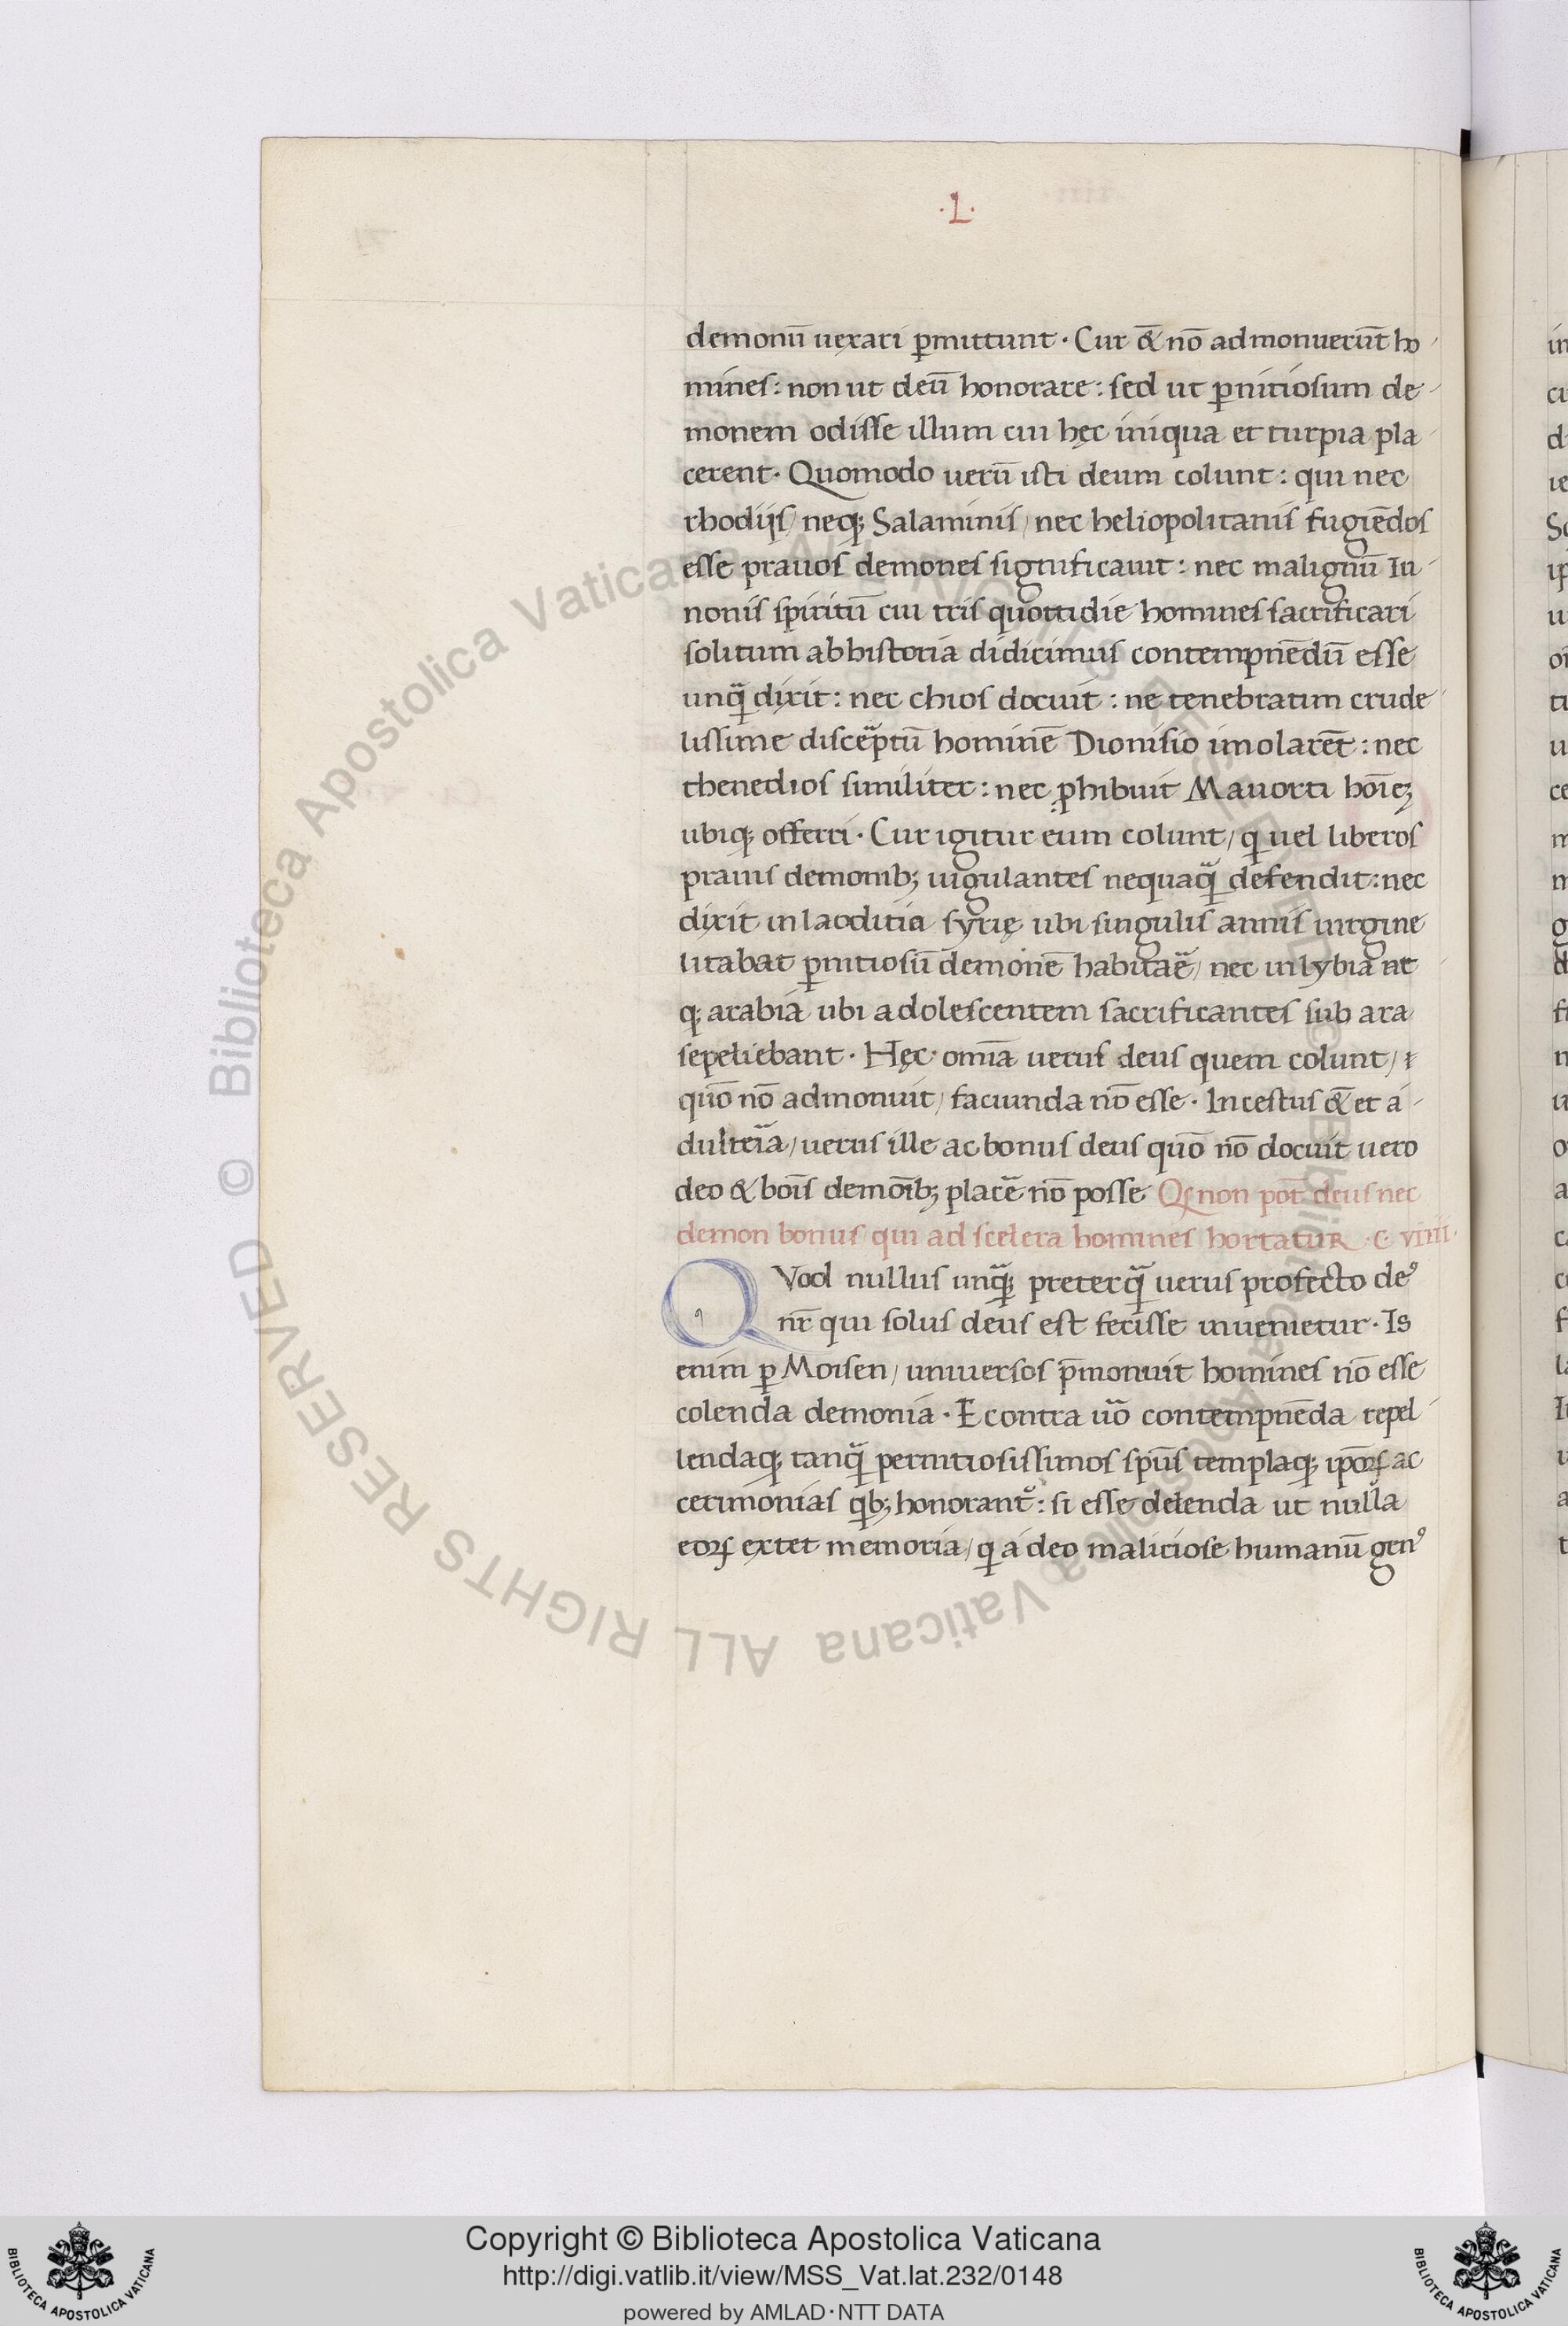 ·L·
demonū uexari ꝑmittunt · Cur &̄ nō admonuerūt ho
mines : non ut deū honorare : sed ut ꝑnitiosum de
monem odisse illum cui hęc iniqua et turpia pla
cerent · Quomodo uerū isti deum colunt : qui nec
rhodijs / neqꝫ Salaminis / nec heliopolitanis fugiēdos
esse prauos demones significauit : nec malignū Iu
nonis spiritū cui tris quottidie homines sacrificari
solitum ab historia didicimus contempnēdū esse
unꝗ̄ dixit : nec chios docuit : ne tenebratim crude
lissime disceptū hominē Dionisio imolarēt : nec
thenedios similiter : nec ꝓhibuit Mauorti hōieꝫ
ubiqꝫ offerri · Cur igitur eum colunt / ꝗ uel liberos
prauis demonibꝫ uigulantes nequaꝗ̄ defendit : nec
dixit in laoditia syrię ubi singulis annis uirgine
litabat ꝑnitiosū demonē habitaē / nec in lybia ne
qꝫ arabia ubi adolescentem sacrificantes sub ara
sepeliebant · Hęc omīa uerus deus quem colunt /
quō nō admonuit / faciunda nō esse · Incestus &̄ et a
dulteīa / uerus ille ac bonus deus quō nō docuit uero
deo & bōis demōibꝫ placē nō posse Qꝭ non pōt deus nec
demon bonus qui ad scelera homines hortatur · C · viiii ·
QVod nullus unꝗ̄ꝫ preterꝗ̄ uerus profecto deꝰ
nr̄ qui solus deus est fecisse inuenietur · Is
enim ꝑ Moisen / uniuersos p̄monuit homines nō esse
colenda demonia · E contra uō contempnēda repel
lendaqꝫ tanꝗ̄ pernitiosissimos spūs templaqꝫ ipōꝝ ac
cerimonias ꝗbꝫ honorant᷑ : si esse delenda ut nulla
eoꝝ extet memoria / ꝗ a deo maliciose humanū genꝰ
Copyright © Biblioteca Apostolica Vaticana
http://digi.vatlib.it/view/MSS_Vat.lat.232/0148
powered by AMLAD·NTT DATA
BIBLIOTECA APOSTOLICA VATICANA
BIBLIOTECA APOSTOLICA VATICANA
© Biblioteca Apostolica Vaticana ALL RIGHTS RESERVED © Biblioteca Apostolica Vaticana ALL RIGHTS RESERVED